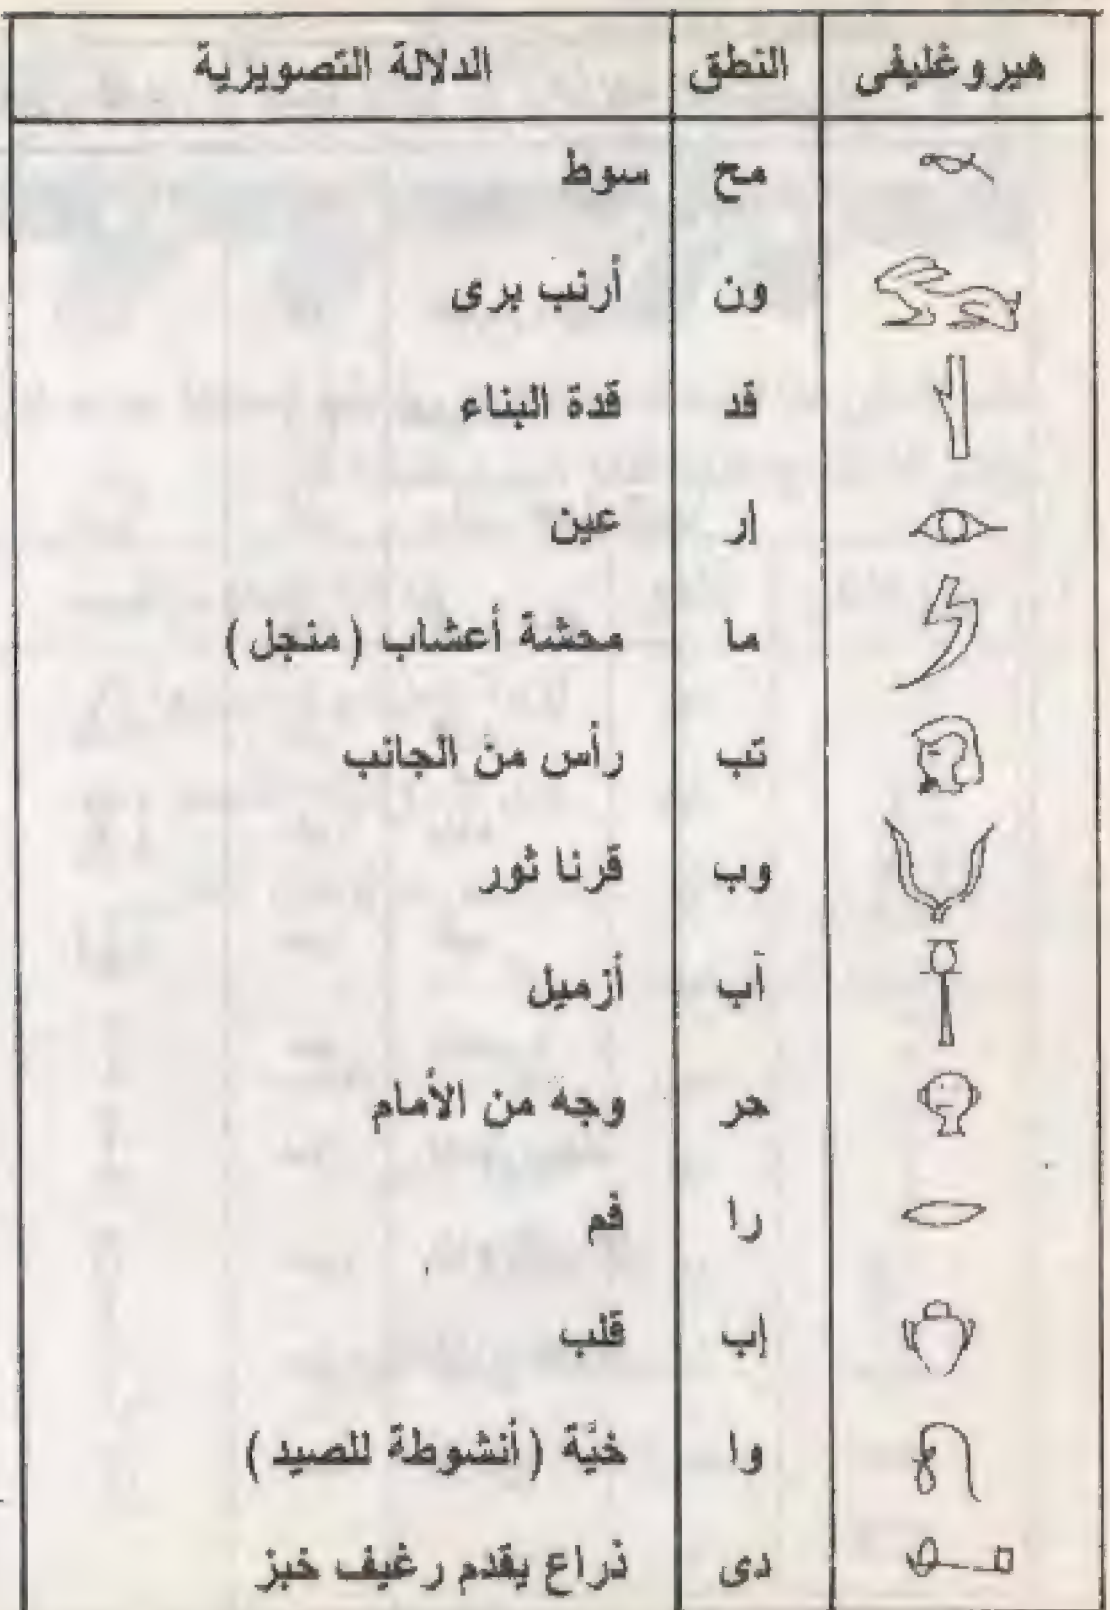 هيروغليفى النطق الدلالة التصويرية
مح سوط
ون أرنب برى
قد قدة البناء
إر عين
ما محشة أعشاب (منجل)
تب رأس من الجانب
وب قرنا ثور
آب أزميل
حر وجه من الأمام
را فم
إب قلب
وا خيَّة (أنشوطة للصيد)
دى ذراع يقدم رغيف خبز